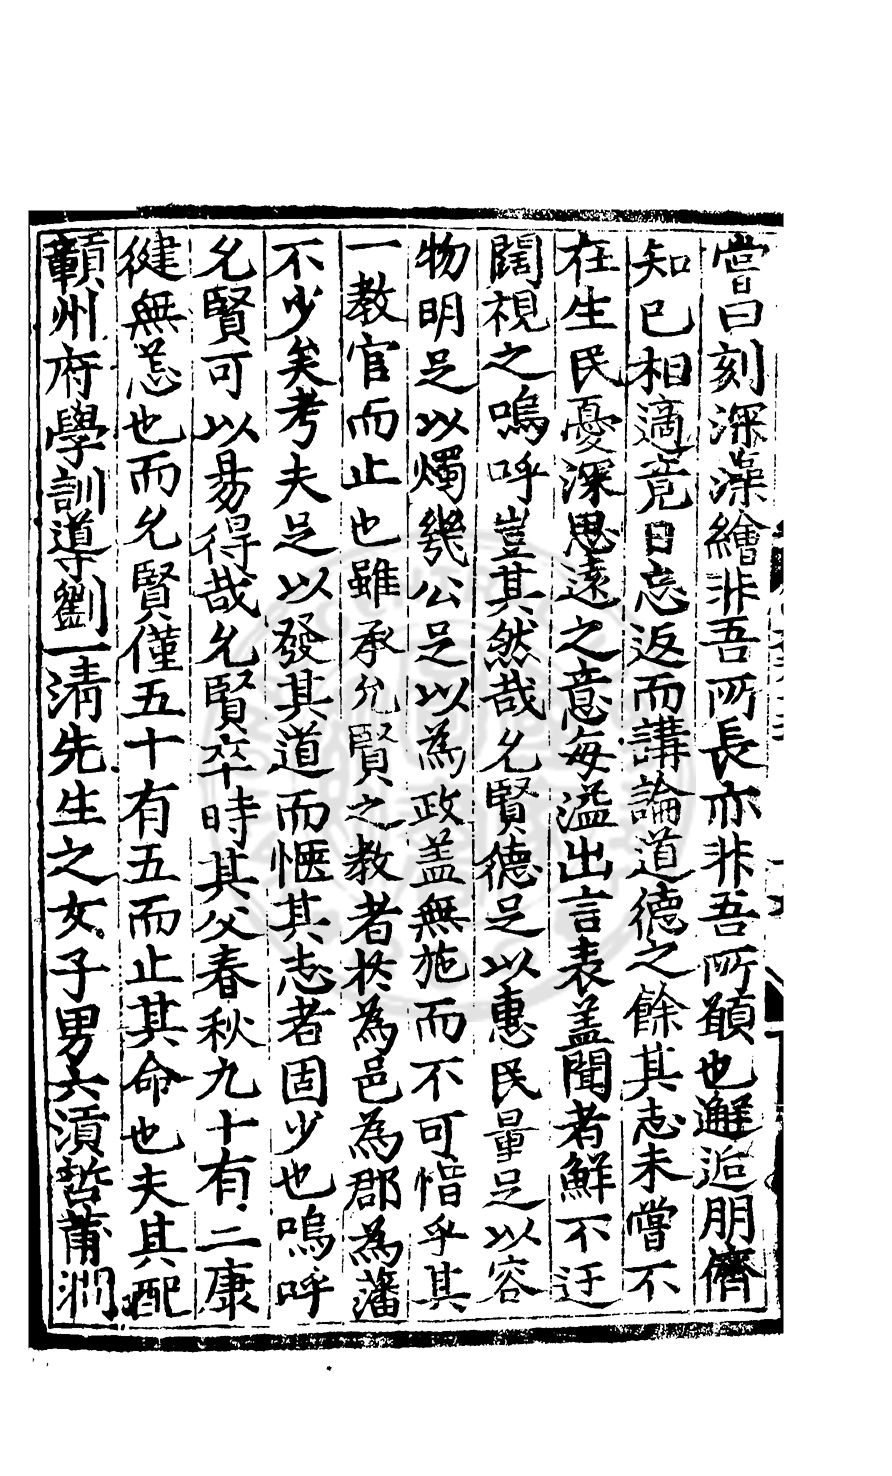 嘗曰刻深藻繪非吾所長亦非吾所顧也邂逅朋儕
知已相適竟日忘返而講論道德之餘其志未嘗不
在生民憂深思遠之意每溢出言表盖聞者鮮不迂
闊視之嗚呼豈其然哉允賢德足以惠民量足以容
物明足以燭幾公足以為政盖無施而不可惜乎其
一教官而止也雖承允賢之教者於為邑為郡為藩
不少矣考夫足以發其道而愜其志者固少也嗚呼
允賢可以易得哉允賢卒時其父春秋九十有二康
健無恙也而允賢僅五十有五而止其命也夫其配
贛州府學訓導劉一清先生之女子男六湏哲莆澗